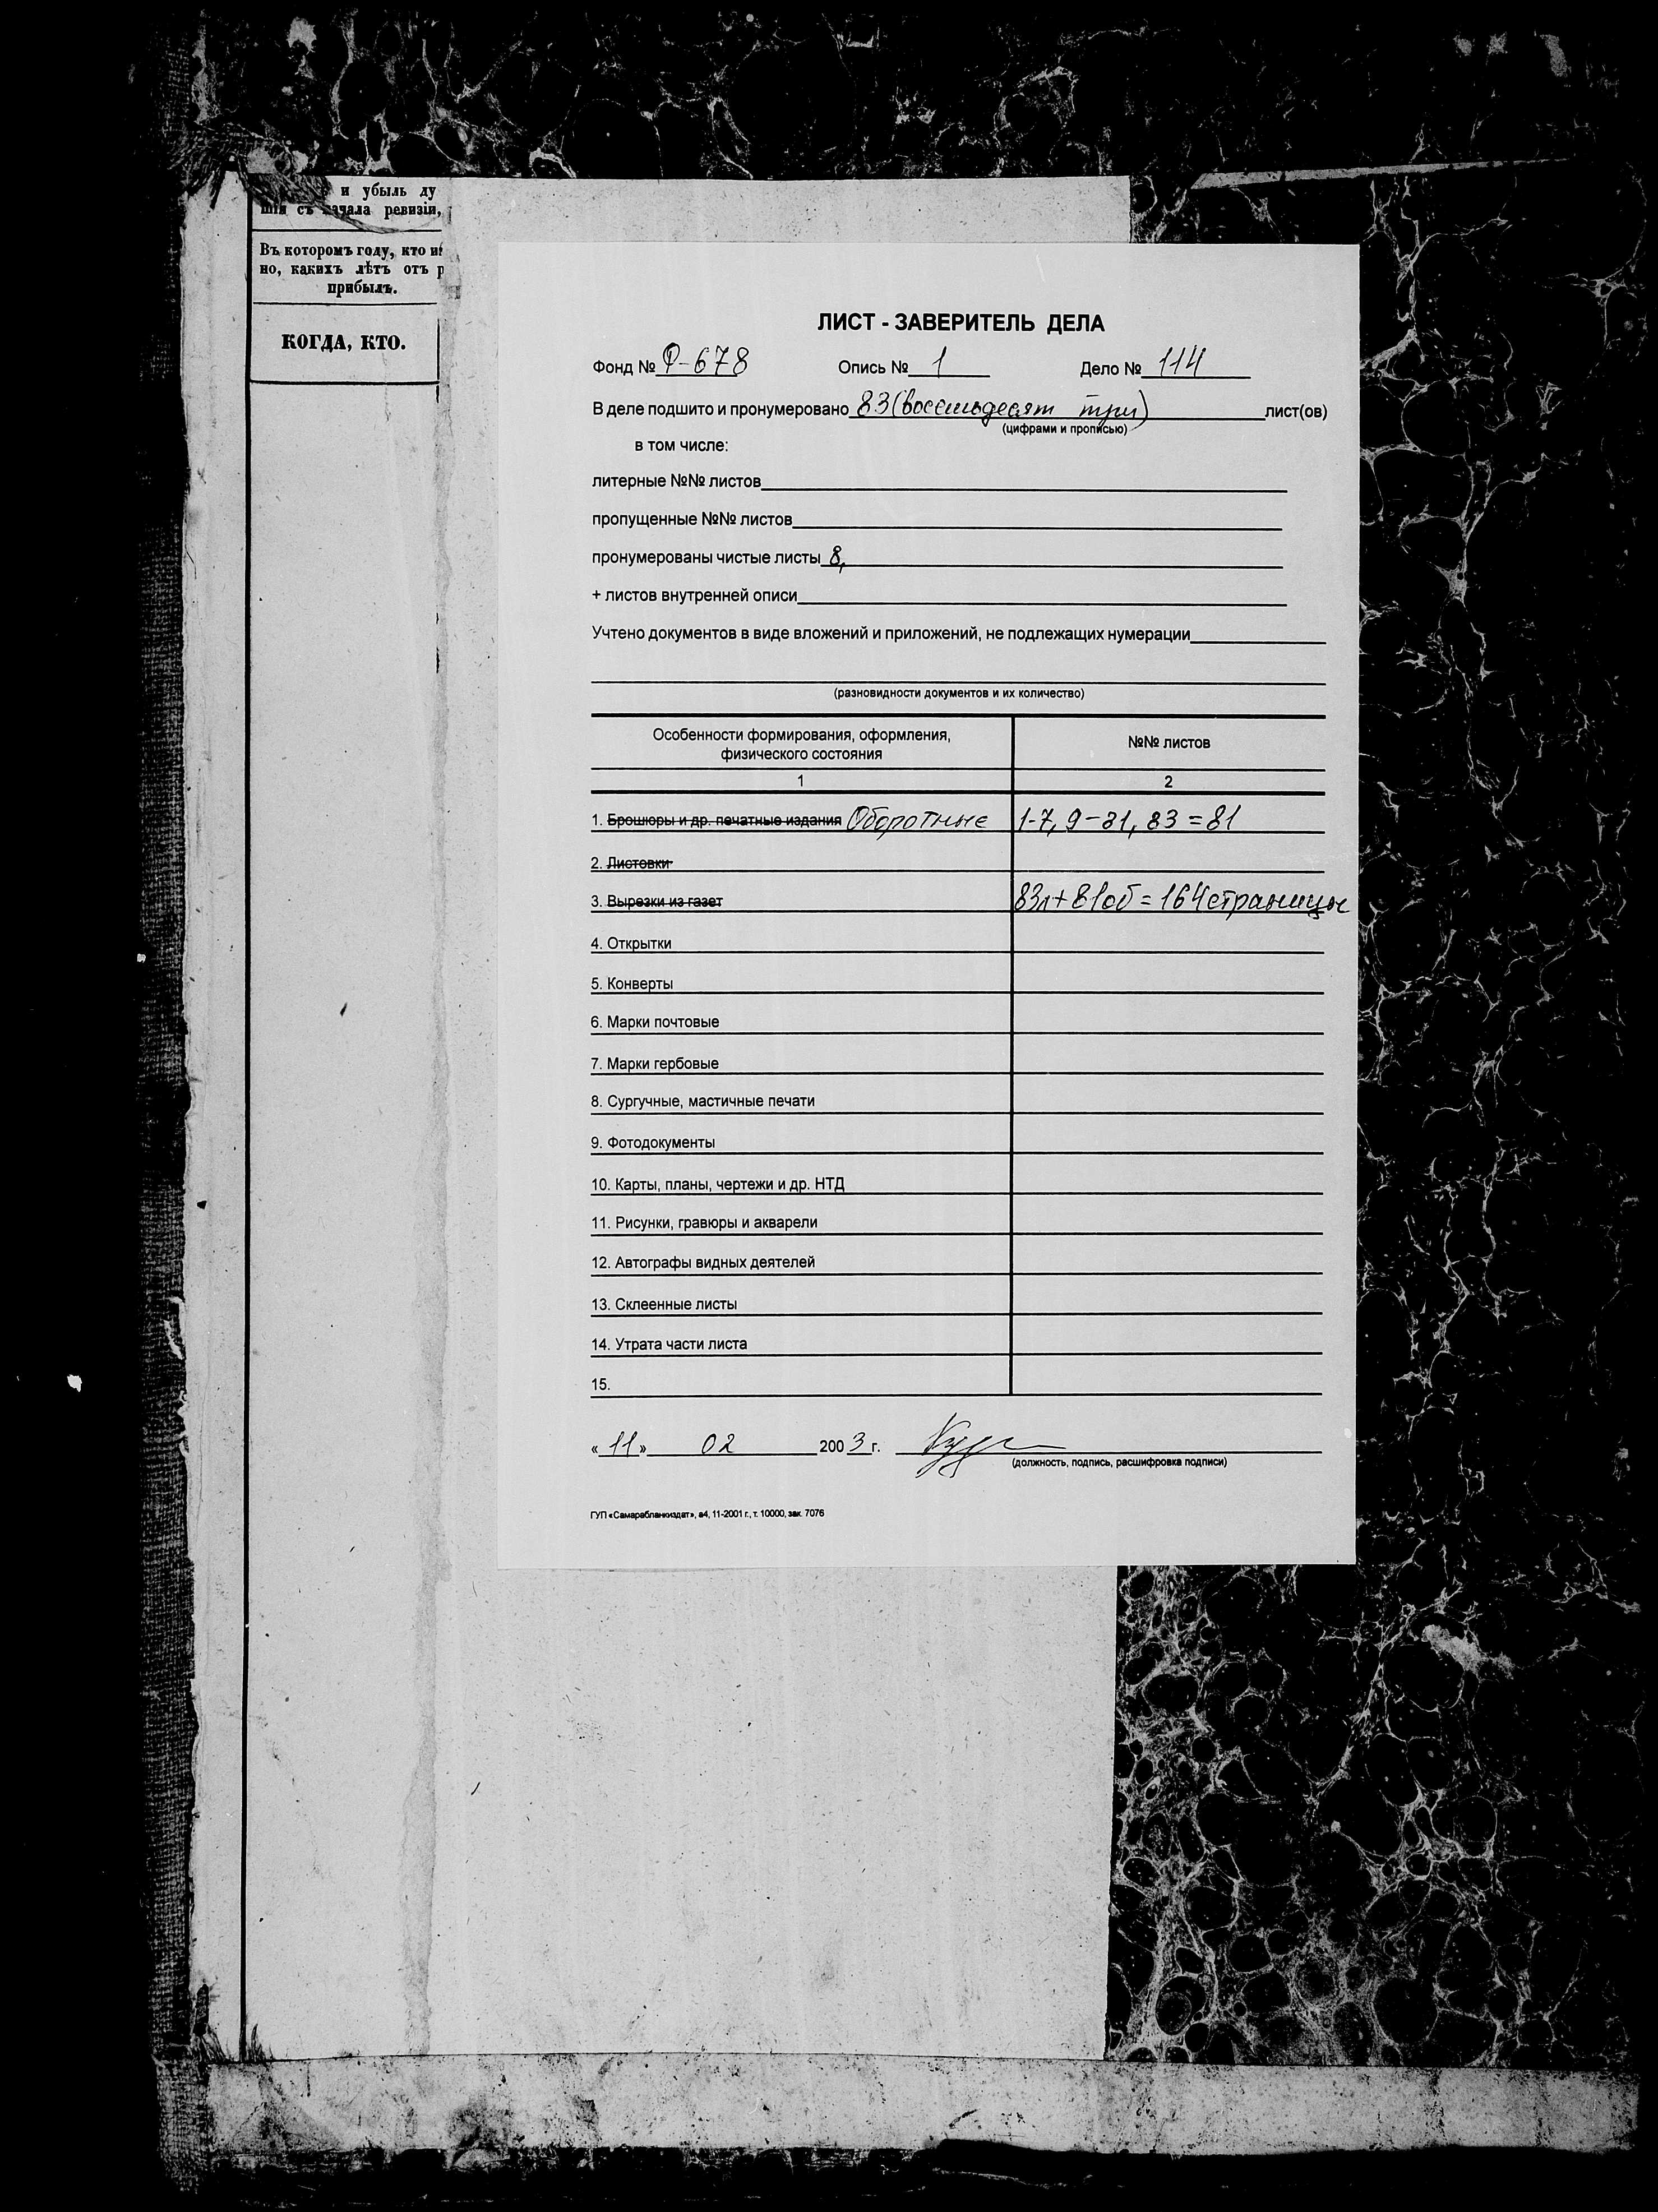 и убыль ду
шія съ начала ревизіи,
Въ которомъ году, кто и
но, какихъ лѣтъ отъ р
прибылъ.
КОГДА, КТО.
ЛИСТ - ЗАВЕРИТЕЛЬ ДЕЛА
Фонд № Ф-678 Опись № 1 Дело № 114
В деле подшито и пронумеровано 83 (восемьдесят три) лист(ов)
(цифрами и прописью)
в том числе:
литерные №№ листов
пропущенные №№ листов
пронумерованы чистые листы 8,
+ листов внутренней описи
Учтено документов в виде вложений и приложений, не подлежащих нумерации
(разновидности документов и их количество)
Особенности формирования, оформления, №№ листов
физического состояния
1 2
1. Брошюры и др. печатные издания Оборотные 1-7, 9-81, 83 = 81
2. Листовки
3. Вырезки из газет 83л + 81об = 164 страницы
4. Открытки
5. Конверты
6. Марки почтовые
7. Марки гербовые
8. Сургучные, мастичные печати
9. Фотодокументы
10. Карты, планы, чертежи и др. НТД
11. Рисунки, гравюры и акварели
12. Автографы видных деятелей
13. Склеенные листы
14. Утрата части листа
15.
« 11 » 02 2003 г.
(должность, подпись, расшифровка подписи)
ГУП «Самарабланкиздат», а4, 11-2001 г., т. 10000, зак. 7076